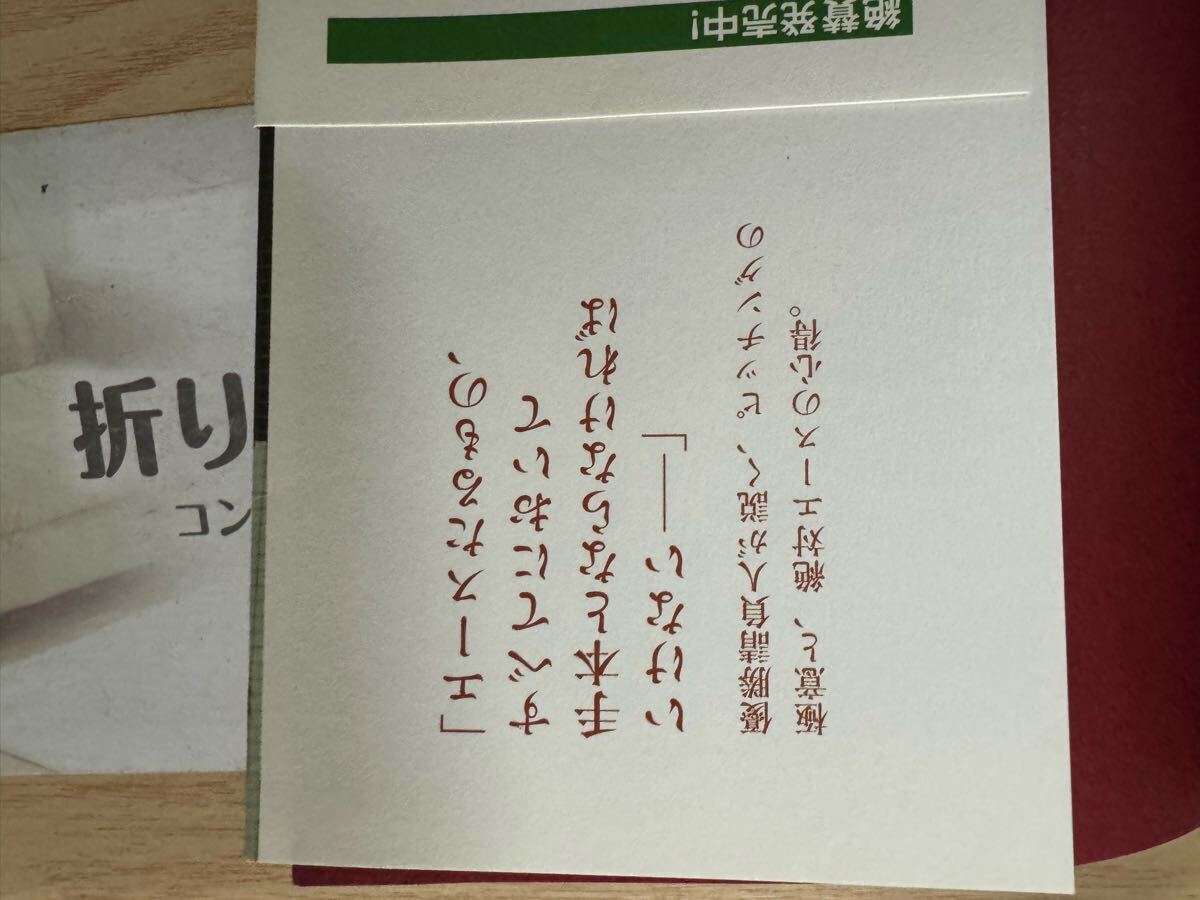 絶賛発売中!
「エースたるもの、
すべてにおいて
手本とならなければ
いけない――」
優勝請負人が説く、ピッチングの
極意と、絶対エースの心得。
折り
コン